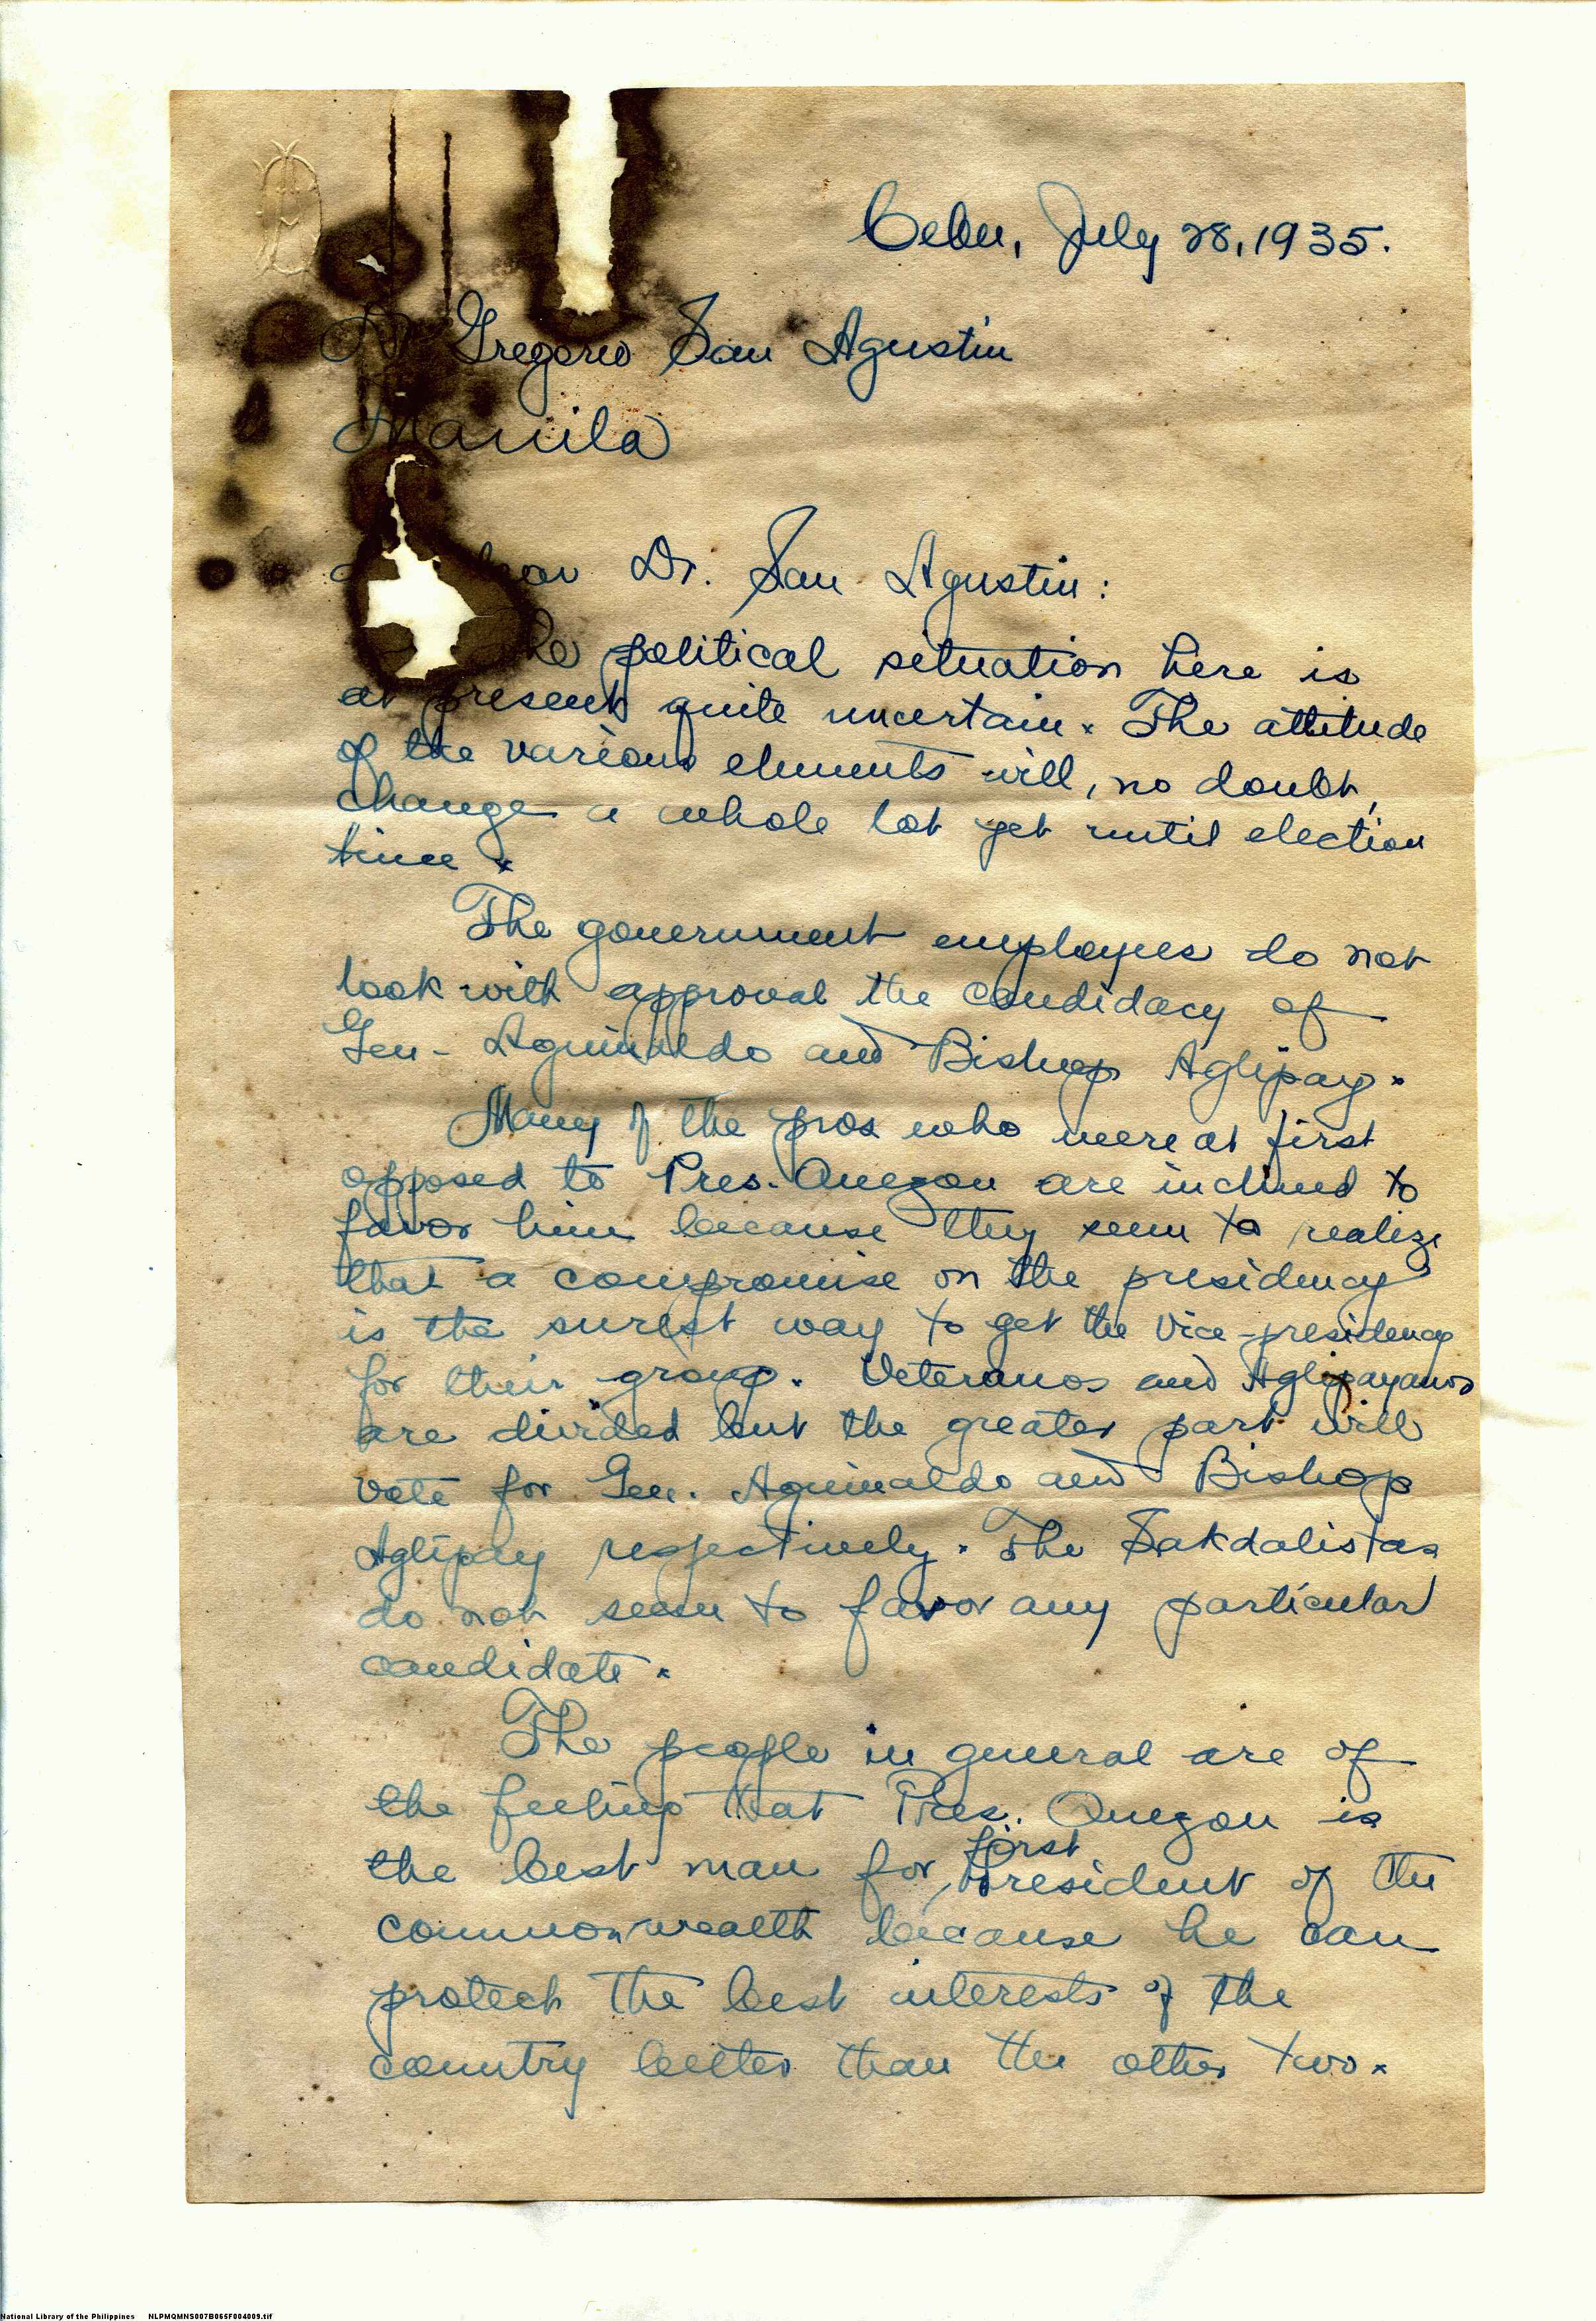 Cebu, July 28, 1935.
Dr Gregorio San Agustin
Manila
Dr. San Agustin:
The political situation here is
at present quite uncertain. The attitude
of the various elements will, no doubt,
change a whole lot yet until election
time.
The government employees do not
look with approval the candidacy of
Gen. Aguinaldo and Bishop Aglipay.
Many of the pros who were at first
opposed to Pres. Quezon are inclined to
favor him because they seem to realize
that a compromise on the presidency
is the surest way to get the vice-presidency
for their group. Veteranos and Aglipayanos
are divided but the greater part will
vote for Gen. Aguinaldo and Bishop
Aglipay respectively. The Sakdalistas
do not seem to favor any particular
candidate.
The people in general are of
the feeling that Pres. Quezon is
first
the best man for, President of the
commonwealth because he can
protect the best interests of the
country better than the other two.
National Library of the Philippines NLPMQMNS007B065F004009.tif